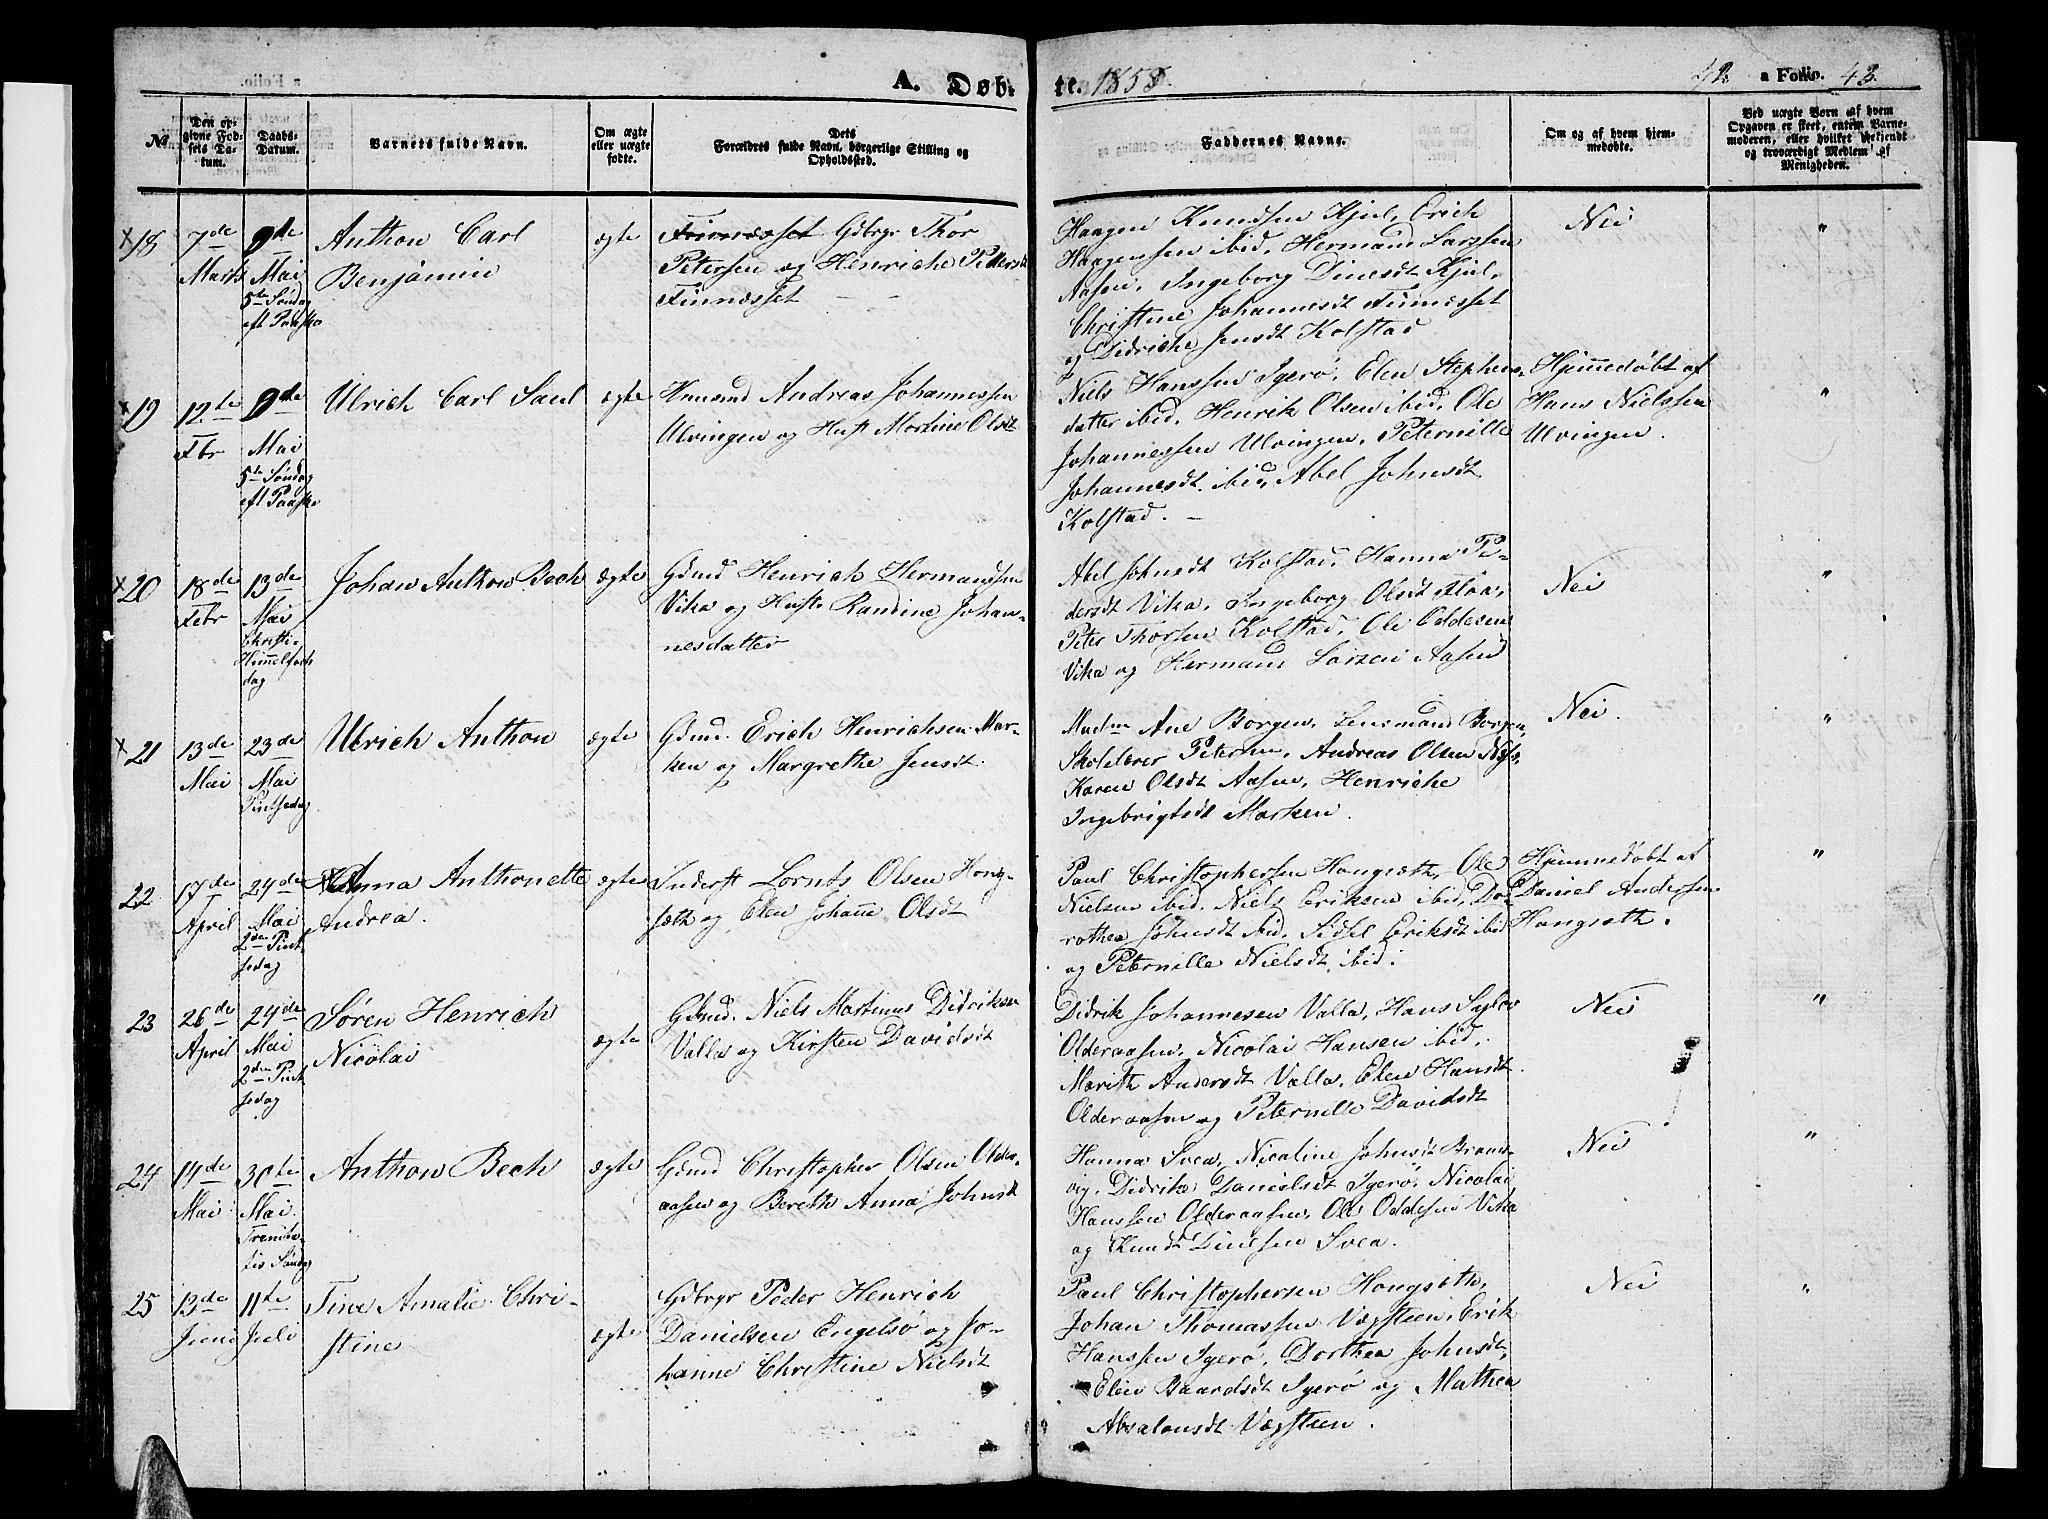 A. Døb-
te. 1858.
42 a Folio. 42
No.
Den op-
givne Fød-
sels Da-
tum.
Daabs-
Datum.
Barnets fulde Navn.
Om ægte
eller uægte
fødte.
Dets
Forældres fulde Navn, borgerlige Stilling og
Opholdssted.
Faddernes Navne.
Om og af hvem hjem-
medøbte.
Ved uægte Børn af hvem
Opgaven er skeet, enten Barne-
moderen, eller hvilket bekjendt
og troværdigt Medlem af
Menigheden.
x18
7de
Marts
9de
Mai
5te Søndag
eft Paaske
Anthon Carl
Benjamin
ægte
Finnæsset Gdbrgr Thor
Petersen og Henriche Pettersdt
Finnæsset
Haagen Knudsen Kjul, Erich
Haagensen ibid, Hermand Larssen
Aasen, Ingeborg Dinesdt Kjul,
Christine Johannesdt Finnæsset
og Didriche Jensdt Kolstad
Nei
"
x19
12te
Fbr
9de
Mai
5te Søndag
eft Paaske
Ulrich Carl Saul
ægte
Huusmd Andreas Johannessen
Ulvingen og Hust Martine Olsdt
Niels Hanssen Igerø, Elen Stephens-
datter ibid, Henrik Olsen ibid, Ole
Johannessen Ulvingen, Peternille
Johannesdt. ibid, Abel Johnsdt
Kolstad. -
Hjemmedøbt af
Hans Nielssen
Ulvingen.
"
x20
18de
Febr
13de
Mai
Christi-
Himmelfarts
dag
Johan Anthon Bech
ægte
Gdmd Henrich Hermandsen
Vika og Hust. Randine Johan-
nesdatter
Abel Johnsdt Kolstad, Hanna Pe-
dersdt Vika, Ingeborg Olsdt Floa,
Peter Thorsen Kolstad, Ole Oddesen
Vika og Hermand Larsen Aasen
Nei
"
x21
13de
Mai
23de
Mai
Pintsedag
Ulrich Anthon
ægte
Gdmd. Erich Henrichsen Mar-
ken og Margrethe Jensdt.
Madm Ane Borgen, Lensmand Borgen,
Skolelærer Petersen, Andreas Olsen
Karen Olsdt Aasen, Henriche
Ingebrigtsdt Marken.
Nei.
"
22
17de
April
24de
Mai
2den Pint
sedag
Anna Anthonette
Andrea.
ægte
Inderst Lornts Olsen Hong-
sæth og Elen Johanne Olsdt
Paul Christophersen Hongsæth, Ole
Nielsen ibid, Niels Eriksen ibid, Do-
rothea Johnsdt ibid, Sidsel Eriksdt ibid
og Peternille Nielsdt ibid.
Hjemmedøbt af
Daniel Andersen
Hongsæth.
"
23
26de
April
24de
Mai
2den Pint
sedag
Søren Henrich
Nicolai
ægte
Gdmd. Niels Martinus Didriksen
Valla og Kirsten Davidsdt
Didrik Johannesen Valla, Hans Sylov
Olderaasen, Nicolai Hansen ibid.
Marith Andersdt Valla, Elen Hansdt.
Olderaasen og Peternille Davidsdt
Nei
"
24
14de
Mai
30te
Mai.
Trenita-
tis Søndag
Anthon Bech
ægte
Gdmd Christopher Olsen Older-
aasen og Bereth Anna Johnsdt
Hanna Svea, Nicoline Johnsdt Brams-
vig, Didrika Danielsdt Igerø, Nicolai
Hanssen Olderaasen, Ole Oddesen Vika
og Knudt Dinesen Svea.
Nei
"
25
13de
Juni
11te
Juli
Tine Amalie Chri-
stine
ægte
Gdbrgr Peder Henrich
Danielsen Engelsø og Jo-
hanne Christine Nielsdt
Paul Christophersen Hongsæth,
Johan Thomassen Vægsteen, Erik
Hanssen Igerø, Dorthea Johnsdt,
Elen Baardsdt Igerø og Mathea
Absalonsdt Vægsteen.
Nei
"